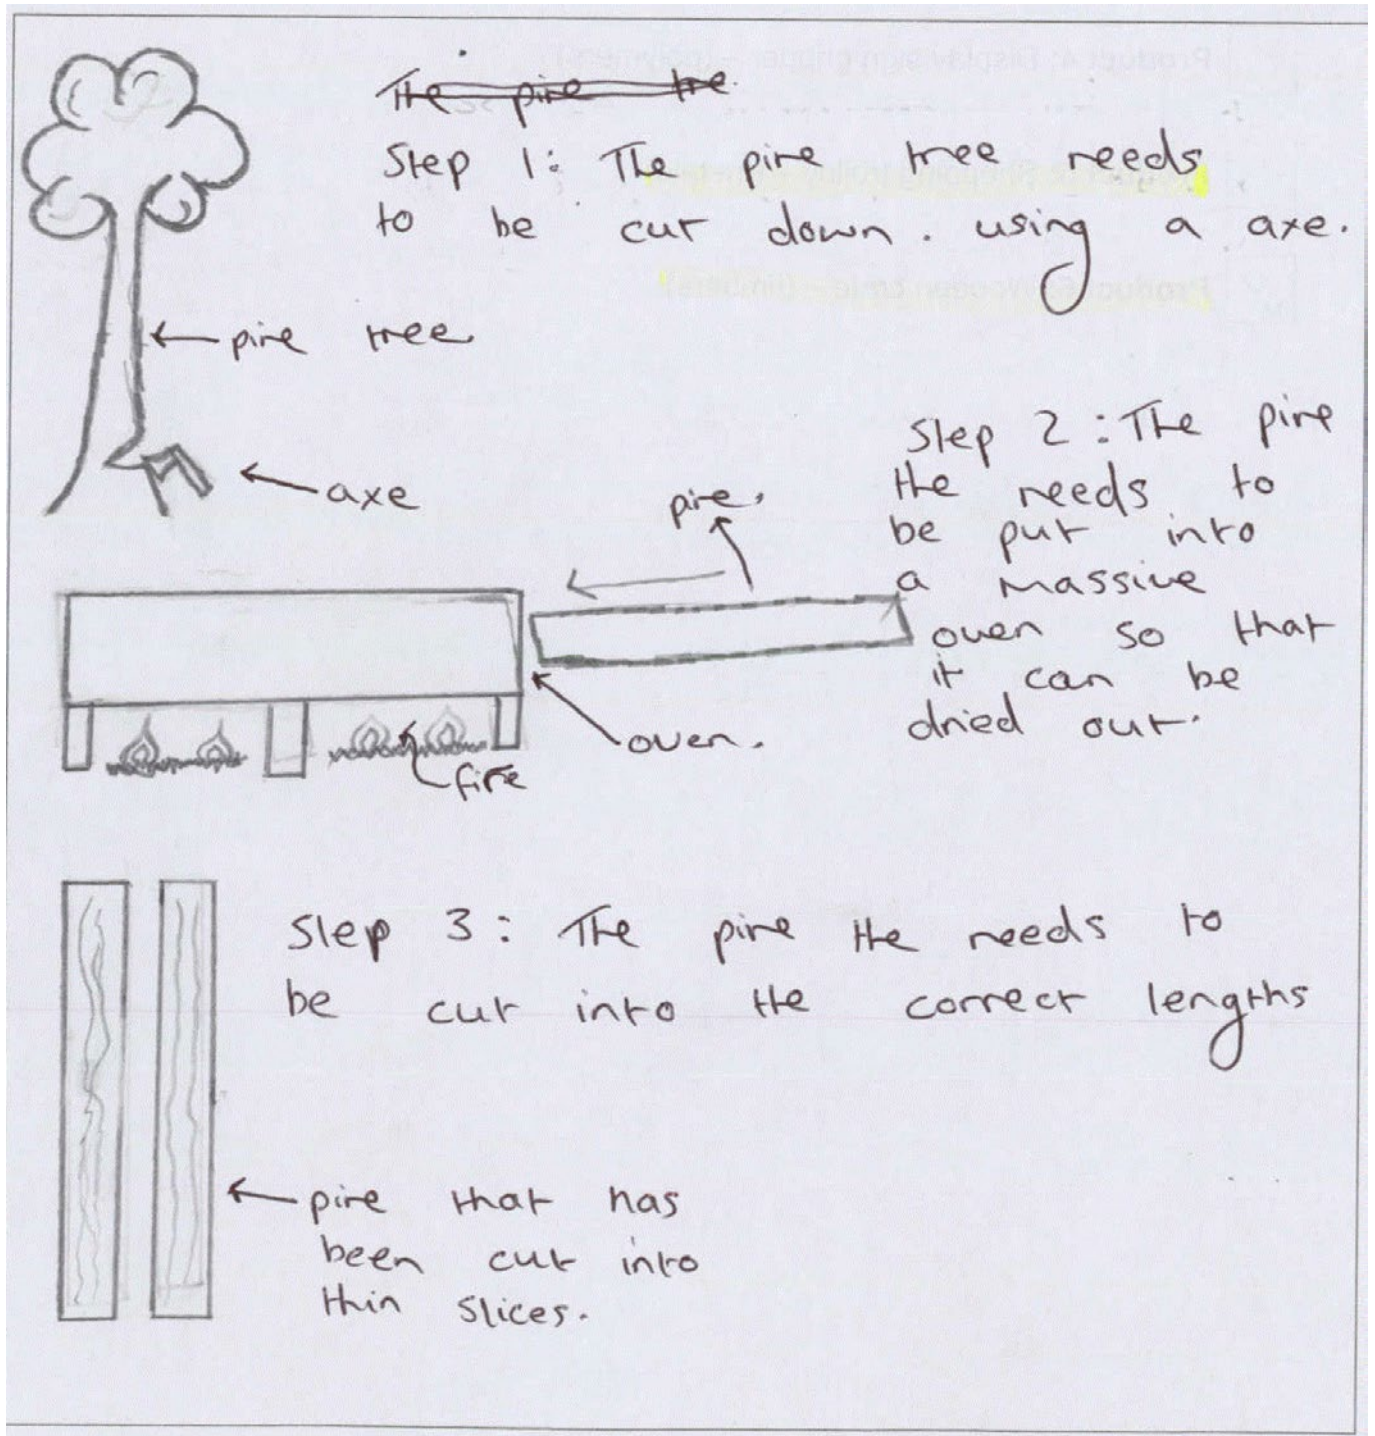 The pine tre
Step 1: The pine tree needs
to be cut down. using a axe.
pine tree
axe
pine.
Step 2: The pine
the needs to
be put into
a massive
oven so that
it can be
dried out.
oven.
fire
Step 3: The pine the needs to
be cut into the correct lengths
pine that has
been cut into
thin slices.